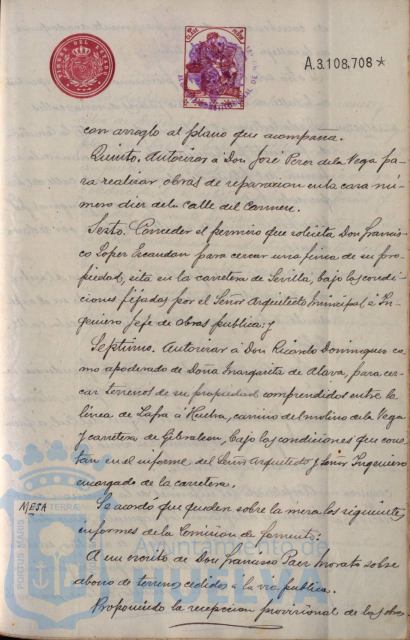 TIMBRE DEL ESTADO
A.3.108.708*
con arreglo al plano que acompaña.
Quinto. Autorizar á Don José Perez de la Vega pa-
ra realizar obras de reparacion en la casa nú-
mero diez de la calle del Carmen.
Sexto. Conceder el permiso que solicita Don Francis-
co Lopez Escandon para cercar una finca de su pro-
piedad, sita en la carretera de Sevilla, bajo las condi-
ciones fijadas por el Señor Arquitecto Municipal é In-
geniero Jefe de obras publicas: y
Septimo. Autorizar á Don Ricardo Dominguez co-
mo apoderado de Doña Margarita de Alava, para cer-
car terrenos de su propiedad comprendidos entre la
línea de Zafra á Huelva, camino del molino de la Vega
y carretera de Gibraleon, bajo las condiciones que cons-
tan en el informe del Señor Arquitecto y Señor Ingeniero
encargado de la carretera.
MESA
Se acordó que queden sobre la mesa los siguientes
informes de la Comision de fomento:
A un escrito de Don Francisco Paez Morato sobre
abono de terreno cedido á la via publica.
Proponiendo la recepcion provisional de las obras
PORTUS MARIS
TERRAE
Ayuntamiento de